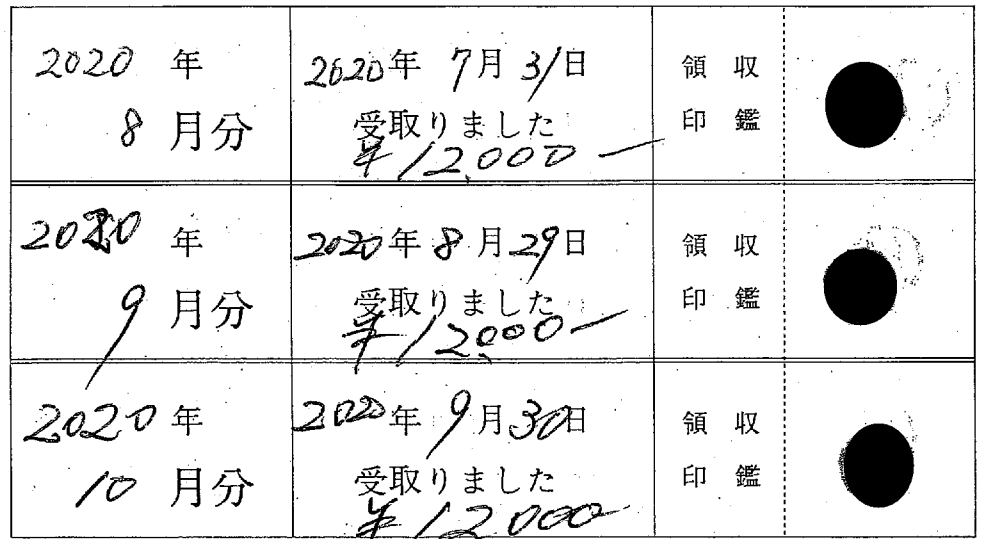 2020 年
8 月分
2020年 7月 31日
受取りました
¥12,000ー
領 収
印 鑑
2020 年
9 月分
2020年 8月 29日
受取りました
¥12,000ー
領 収
印 鑑
2020 年
10 月分
2020年 9月 30日
受取りました
¥12,000
領 収
印 鑑